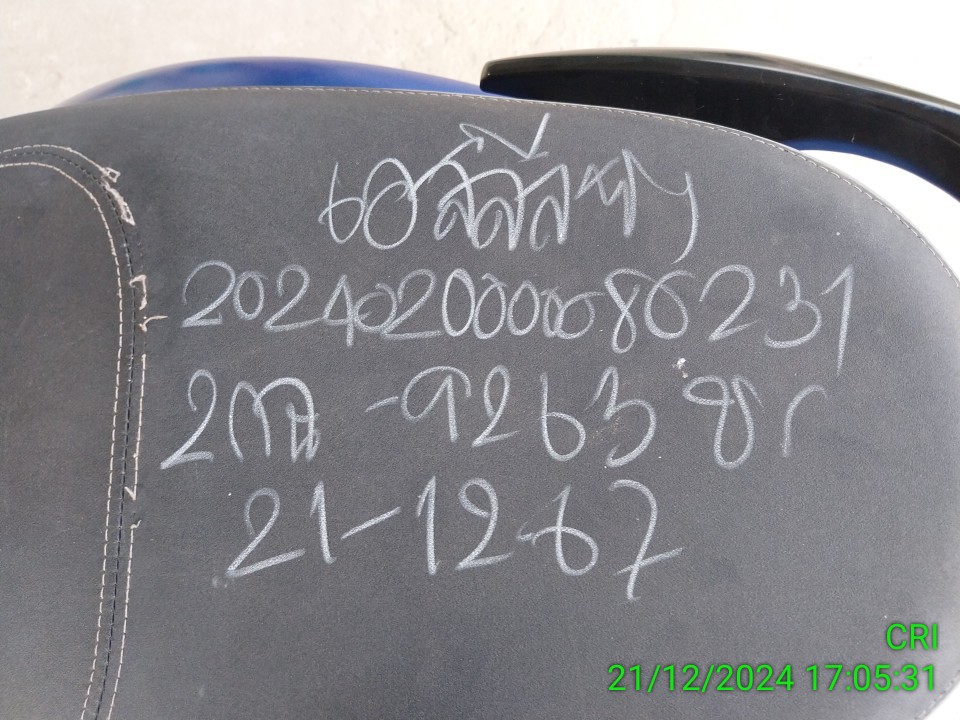 20240200000086231
2กฆ-9263 ชร
21-12-67
CRI
21/12/2024 17:05:31